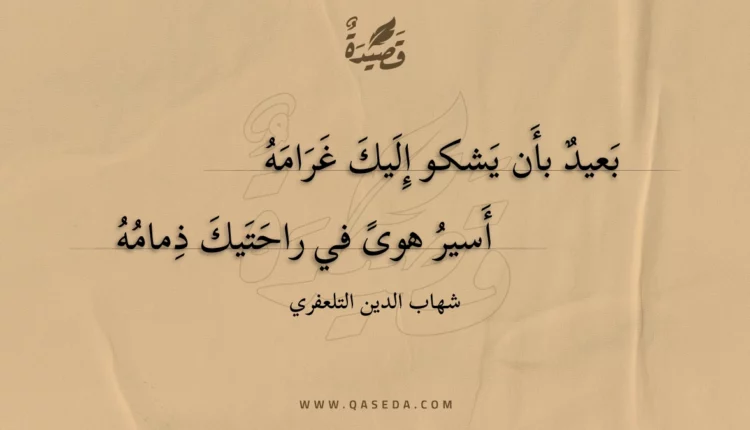 قَصِيدَةٌ
بَعيدٌ بأَن يَشكو إِلَيكَ غَرَامَهُ
أَسيرُ هوىً في راحَتَيكَ ذِمامُهُ
شهاب الدين التلعفري
WWW.QASEDA.COM